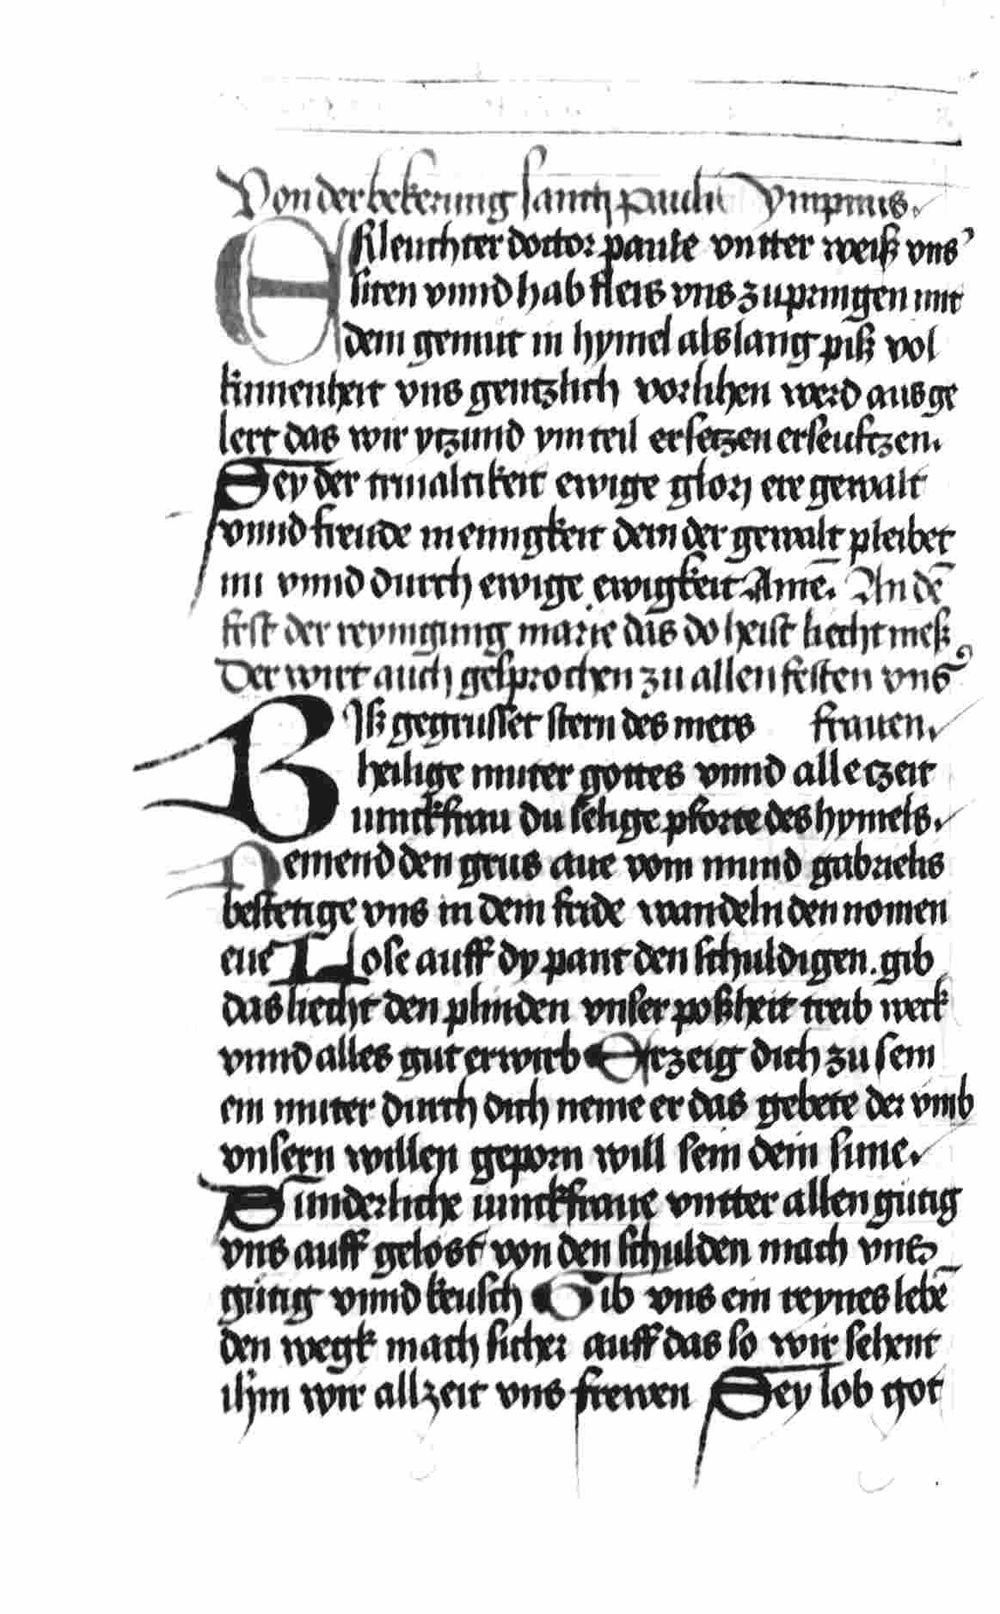 Von der bekerung sanctj Pauli ympnus.
ERleuchter doctor paule vntter weiß vns
siten vnnd hab fleis vns zu pringen mit
dem gemut in hymel als lang piß vol
kumenheit vns gentzlich vorlihen werd ausge
lert das wir ytzund vm teil ersetzen erseuftzen.
Sey der triualtikeit ewige glorj ere gewalt
vnnd freude in einigkeit dem der gewalt pleibet
nu vnnd durch ewige ewigkeit Amē. An dē
fest der reynigung marie das do heist liecht meß
Der wirt auch gesprochen zu allen festen vnser
BJß gegrusset stern des mers frauen.
heilige muter gottes vnnd alletzeit
iunckfrau du selige pforte des hymels.
Nemend den grus aue vom mund gabrielis
bestetige vns in dem fride wandeln den nomen
eue Lose auff dy pant den schuldigen. gib
das liecht den plinden vnser poßheit treib weck
vnnd alles gut erwirb Erzeig dich zu sein
ein muter durch dich neme er das gebete der vmb
vnsern willen geporn will sein dein sune.
Sunderliche iunckfraue vntter allen gutig
vns auff gelost von den schulden mach vns
gutig vnnd keusch Gib vns ein reynes lebē
den wegk mach sicher auff das so wir sehent
ihm wir allzeit vns frewen Sey lob got